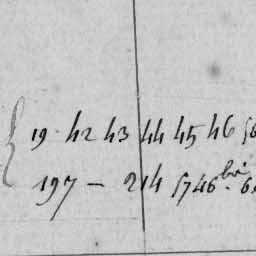 19. 42 43 44 45 46
197 – 214 5746 bis. 6